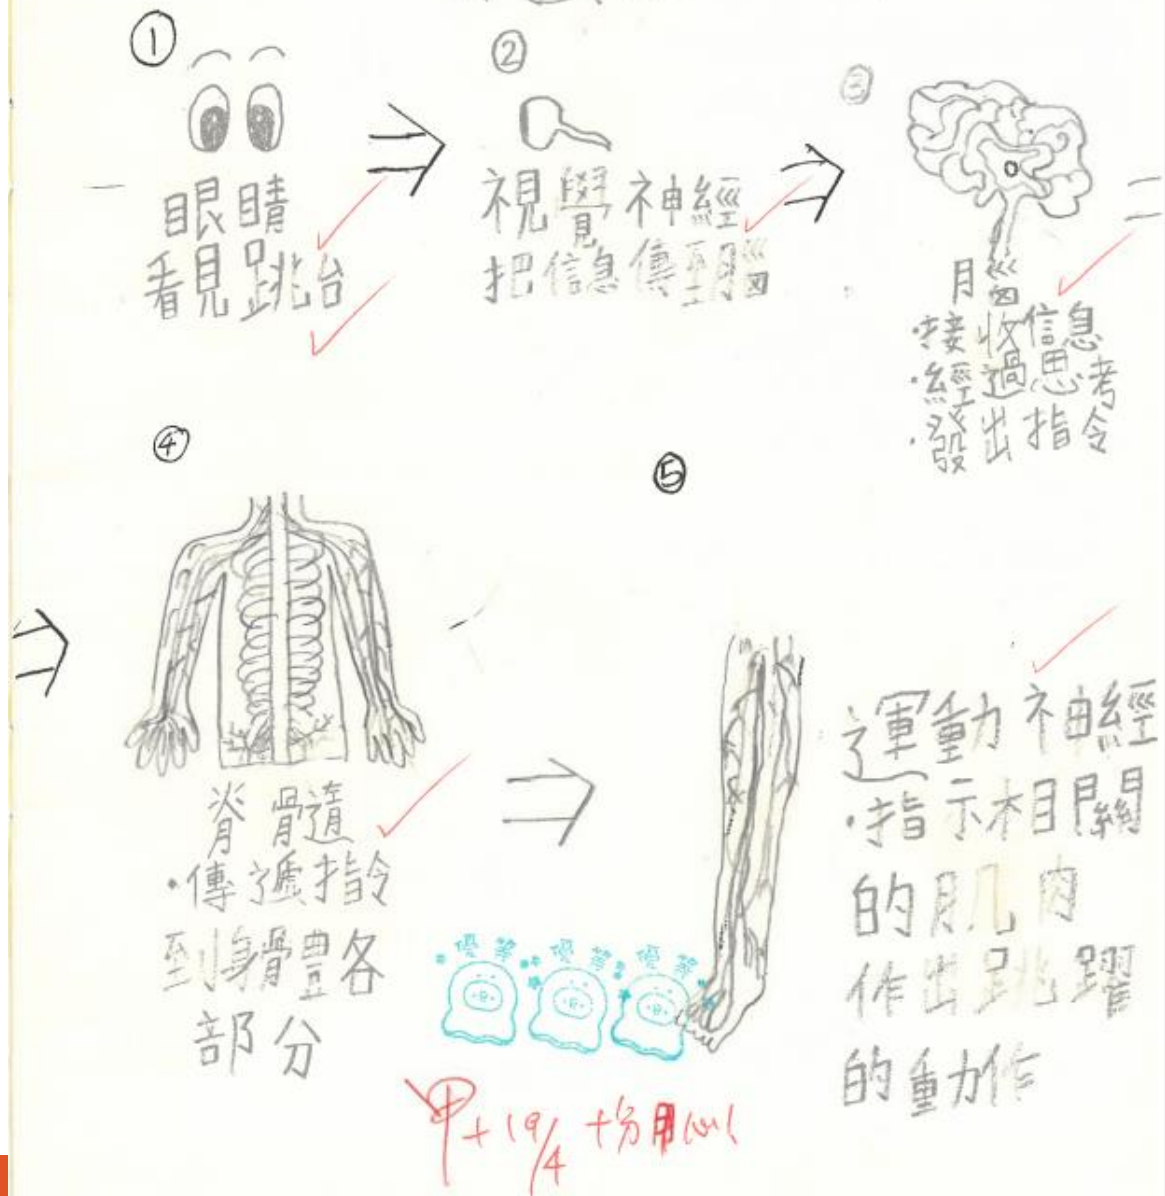 ①
眼睛
看見跳台
②
視覺神經
把信息傳至腦
③
腦
·接收信息
·經過思考
·發出指令
④
脊骨髓
·傳遞指令
到身體各
部分
⑤
運動神經
·指示相關
的肌肉
作出跳躍
的動作
優等 優等 優等
甲+ 19/4 十分用心!